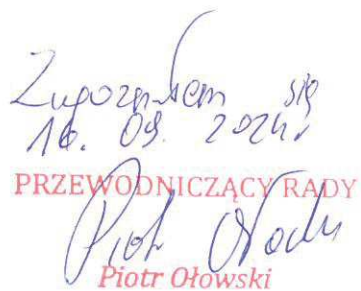 Zapoznałem się
16. 09. 2024r
PRZEWODNICZĄCY RADY
Piotr Ołowski
Piotr Ołowski